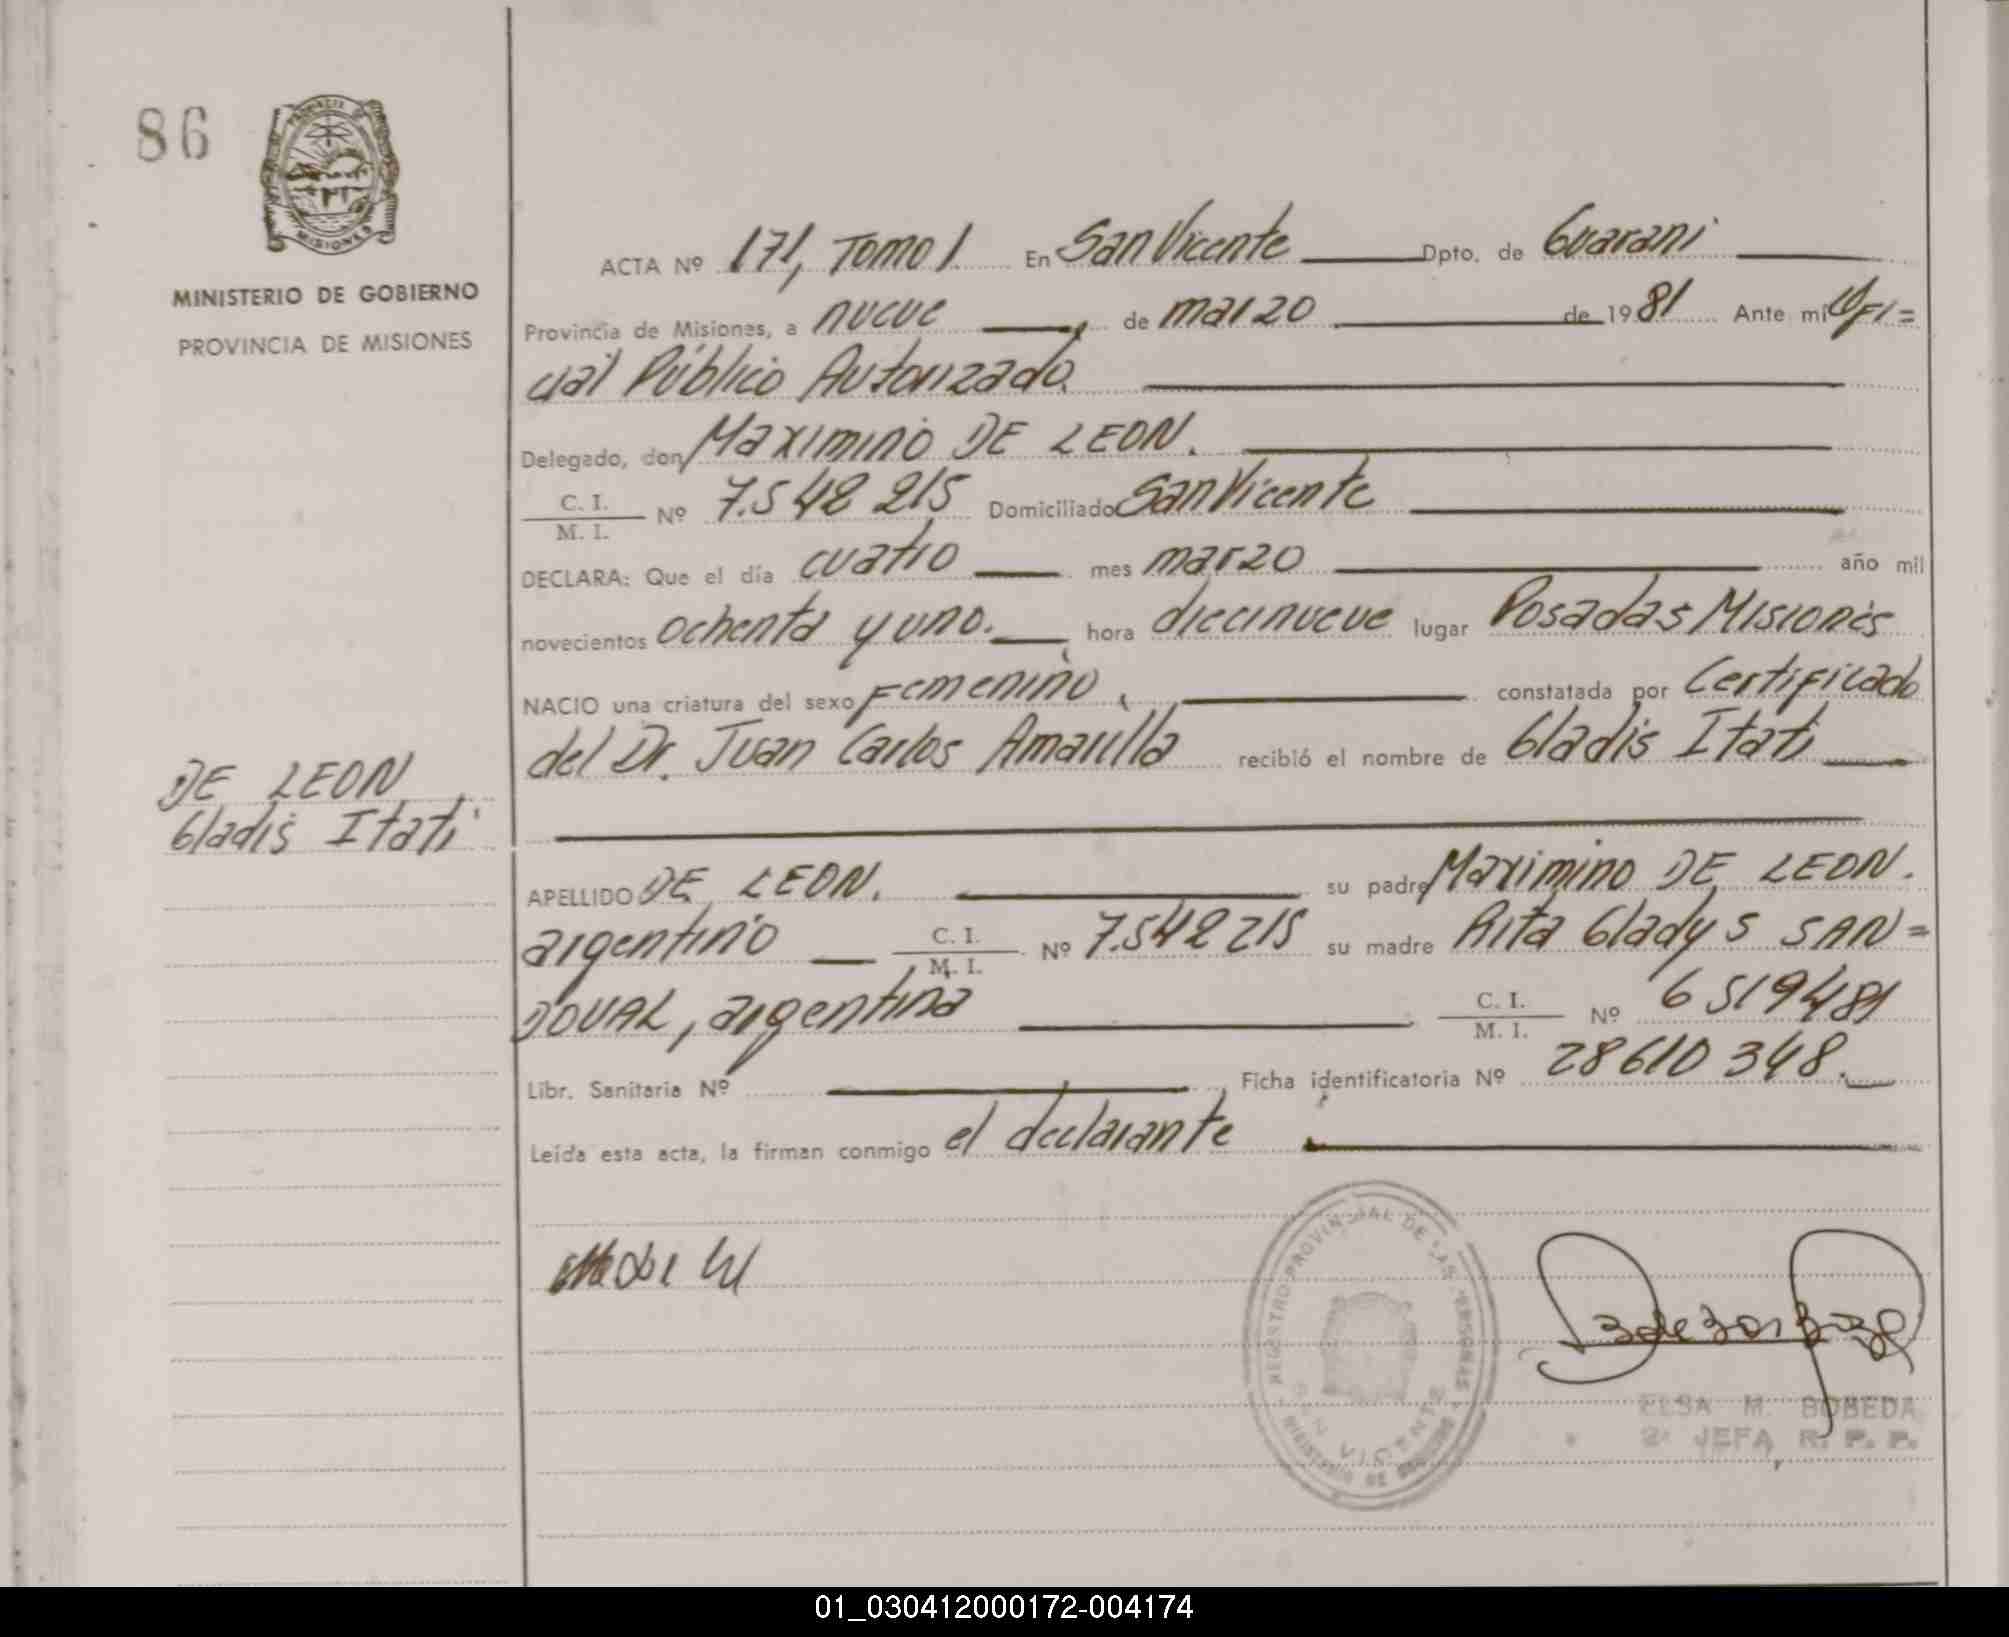 86
PROVINCIA DE
MISIONES
MINISTERIO DE GOBIERNO
PROVINCIA DE MISIONES
ACTA Nº 171, Tomo 1. En San Vicente Dpto. de Guarani
Provincia de Misiones, a nueve, de marzo de 1981 Ante mi Ofi=
cial Público Autorizado.
Delegado, don Maximino DE LEON.
C. I. / M. I. Nº 7.542 215 Domiciliado San Vicente
DECLARA: Que el día cuatro mes marzo año mil
novecientos ochenta y uno. hora diecinueve lugar Posadas Misiones
NACIO una criatura del sexo Femenino, constatada por Certificado
del Dr. Juan Carlos Amarilla recibió el nombre de Gladis Itati
DE LEON
Gladis Itati
APELLIDO DE LEON. su padre Maximino DE LEON.
argentino C. I. / M. I. Nº 7.542 215 su madre Rita Gladys SAN=
DOVAL, argentina C. I. / M. I. Nº 6 519481
Libr. Sanitaria Nº Ficha identificatoria Nº 28610 348.
Leída esta acta, la firman conmigo el declarante
REGISTRO PROVINCIAL DE LAS PERSONAS
SAN VICENTE
MINISTERIO DE GOBIERNO
ELSA M. BOBEDA
2ª JEFA, R. P. P.
01_030412000172-004174